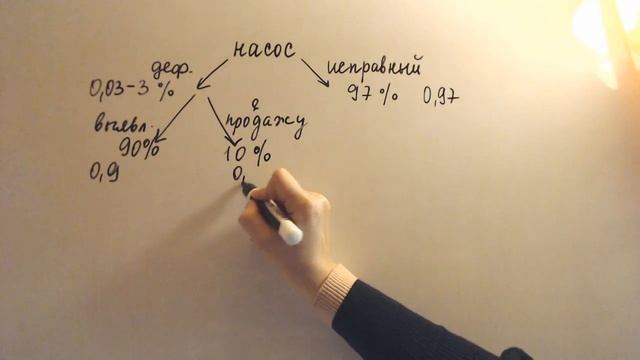 насос
деф.
исправный
0,03-3%
97% 0,97
выявл.
в продажу
90%
10%
0,9
0,